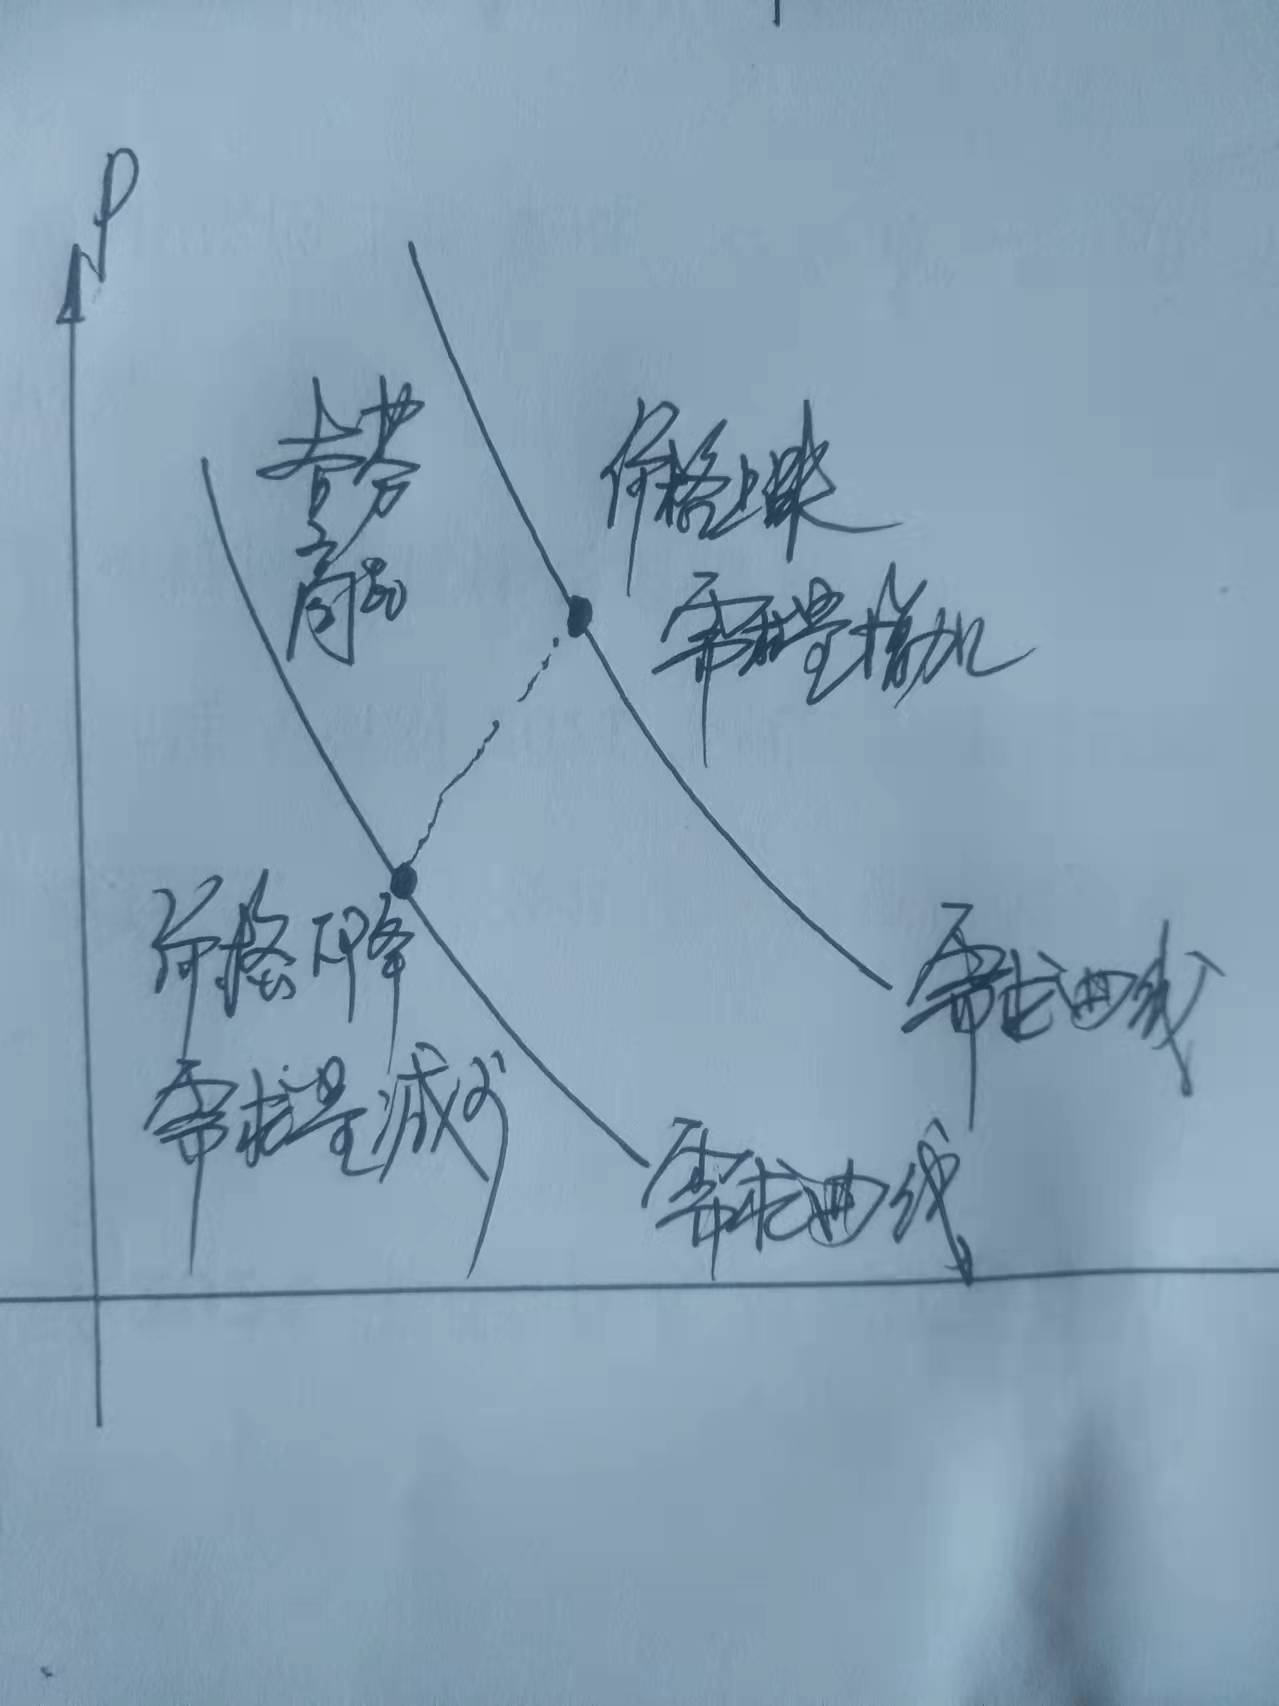 P
吉芬
商品
价格上涨
需求量增加
价格下降
需求量减少
需求曲线
需求曲线